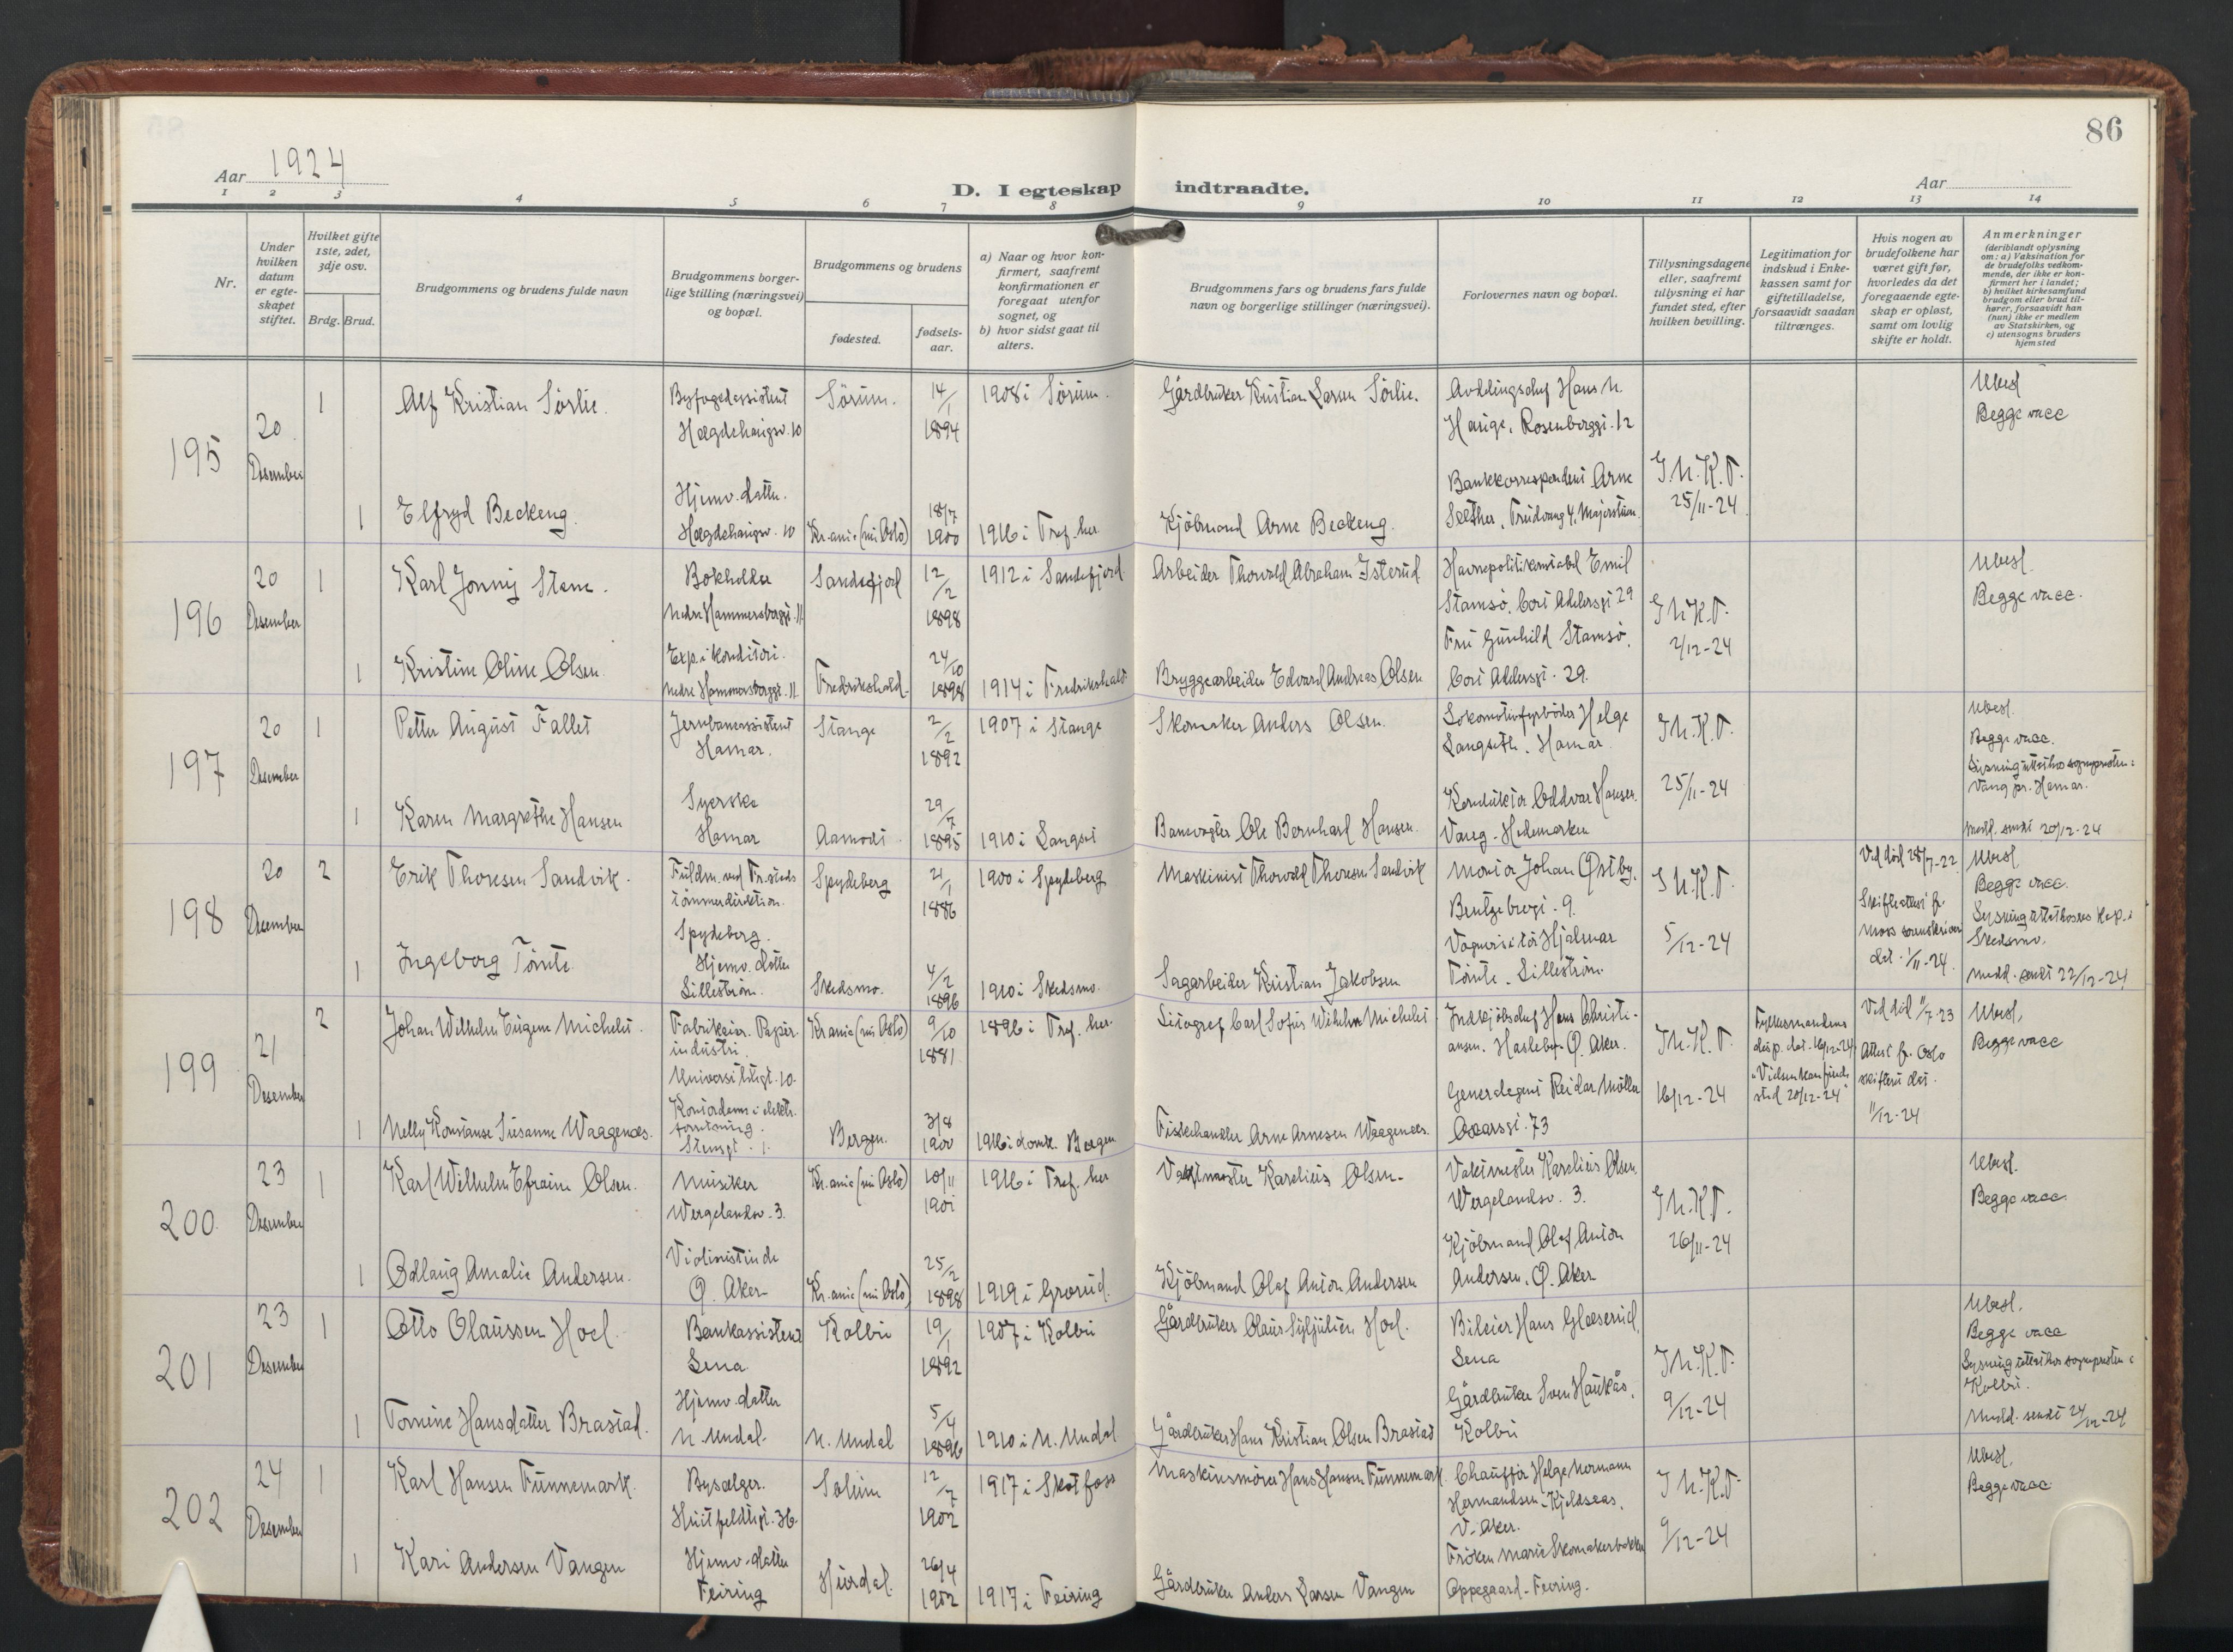 86
Aar 1924
D. I egteskap indtraadte.
Aar
1 2 3 4 5 6 7 8 9 10 11 12 13 14
Nr.
Under hvilken datum er egteskapet stiftet.
Hvilket gifte 1ste, 2det, 3dje osv.
Brdg. Brud.
Brudgommens og brudens fulde navn
Brudgommens borgerlige stilling (næringsvei) og bopæl.
Brudgommens og brudens
fødested.
fødselsaar.
a) Naar og hvor konfirmert, saafremt konfirmationen er foregaat utenfor sognet, og
b) hvor sidst gaat til alters.
Brudgommens fars og brudens fars fulde navn og borgerlige stillinger (næringsvei).
Forlovernes navn og bopæl.
Tillysningsdagene eller, saafremt tillysning ei har fundet sted, efter hvilken bevilling.
Legitimation for indskud i Enkekassen samt for giftetilladelse, forsaavidt saadan tiltrænges.
Hvis nogen av brudefolkene har været gift før, hvorledes da det foregaaende egteskap er opløst, samt om lovlig skifte er holdt.
Anmerkninger
(deriblandt oplysning om: a) Vaksination for de brudefolks vedkommende, der ikke er konfirmert her i landet;
b) hvilket kirkesamfund brudgom eller brud tilhører, forsaavidt han (hun) ikke er medlem av Statskirken, og
c) utensogns bruders hjemsted
195
20 Desember
1
Alf Kristian Sørlie.
Byfogedassistent
Hægdehaugsv. 10
Sørum.
14/1 1894
1908 i Sørum.
Gårdbruker Kristian Larsen Sørlie.
Avdelingschef Hans N.
Hauge, Rosenborggt. 12
Ubesl
Begge vacc
1
Elfryd Beckeng.
Hjemv. datter.
Hægdehaugsv. 10
Kr.ania (nu Oslo)
18/7 1900
1916 i Tref. her.
Kjøbmand Arne Beckeng.
Bankkorrespondent Arne
Sæther, Trudvang 4, Majorstuen.
I.N.K.T.
25/11-24
196
20 Desember
1
Karl Jonny Stene.
Bokholder
Nedre Hammersborggt. 11
Sandefjord
12/2 1898
1912 i Sandefjord
Arbeider Thorvald Abraham Isterud
Havnepolitikonstabel Emil
Stamsø, Cort Adelersgt 29
I N.K.T.
2/12-24
Ubesl.
Begge vacc.
1
Kristine Oline Olsen.
Exp. i konditori.
Nedre Hammersborggt. 11.
Fredrikshald
24/10 1898
1914 i Fredrikshald
Bryggearbeider Edvard Andreas Olsen
Fru Gunhild Stamsø,
Cort Adelersgt. 29.
197
20 Desember
1
Petter August Fallet
Jernbaneassistent
Hamar.
Stange
2/2 1892
1907 i Stange
Skomaker Anders Olsen.
Lokomotivfyrbøder Helge
Langseth, Hamar.
I.N.K.T.
25/11-24
Ubesl.
Begge vacc.
Lysning attest hos sognepresten i
Vang pr. Hamar.
Medd. sendt 20/12-24
1
Karen Margrethe Hansen
Syerske
Hamar
Aamodt
29/7 1895
1910 i Langset
Banevogter Ole Bernhard Hansen.
Konduktør Oddvar Hansen.
Vang. Hedemarken
198
20 Desember
2
Erik Thoresen Sandvik.
Fuldm. ved Fr.stads
tømmerdirektion.
Spydeberg.
Spydeberg
21/1 1886
1900 i Spydeberg
Maskinist Thorvald Thoresen Sandvik
Montør Johan Østby.
Bentsebrogt. 9.
I N.K.T.
5/12-24
Ved død 28/7-22
Skifteattest fr.
Moss sorenskriver
dat. 1/11-24.
Ubesl
Begge vacc.
Lysning attest hos res. kap. i
Skedsmo.
Medd. sendt 22/12-24
1
Ingeborg Tomte
Hjemv. datter
Lillestrøm.
Skedsmo.
4/2 1896
1910 i Skedsmo.
Sagarbeider Kristian Jakobsen
Hjalmar
Tomte. Lillestrøm.
199
21 Desember
2
Johan Wilhelm Eugene Michelet.
Fabrikeier. Papirindustri.
Universitetsgt. 10.
Kr.ania (nu Oslo)
9/10 1881
1896 i Tref. her.
Litograf Carl Sofus Wilhelm Michelet
Indkjøbschef Hans Christiansen. Hasleby. Ø. Aker.
I N.K.T.
16/12-24
Fylkesmandens
disp. dat. 16/12-24
Ved død 1/7 23
Attest fr. Oslo
skifteret dat.
11/12-24
Ubesl.
Begge vacc
1
Nelly Konstanse Susanne Waagenes.
Kontordame i elektr.
forretning.
Stensgt. 1.
Bergen.
3/8 1900
1916 i domk. Bergen
Fiskehandler Arne Arnesen Waagenes.
Generalagent Reidar Møller
Oscarsgt. 73
200
23 Desember
1
Karl Wilhelm Efraim Olsen.
Musiker
Wergelandsv. 3.
Kr.ania (nu Oslo)
10/11 1901
1916 i Tref. her
Vaktmester Karelius Olsen.
Vaktmester Karelius Olsen,
Wergelandsv. 3.
I N.K.T.
26/11-24
Ubesl.
Begge vacc.
1
Odlaug Amalie Andersen.
Violinistinde
Ø. Aker
Kr.ania (nu Oslo)
25/2 1898
1919 i Grorud.
Kjøbmand Olaf Anton Andersen
Kjøbmand Olaf Anton
Andersen. Ø. Aker
201
23 Desember
1
Otto Olaussen Hoel.
Bankassistent
Lena
Kolbu
19/1 1892
1907 i Kolbu
Gårdbruker Olaus Syljulien Hoel.
Bileier Hans Glæserud,
Lena
I N.K.T.
9/12-24
Ubesl.
Begge vacc
Lysning attest hos sognepresten i
Kolbu.
Medd. sendt 24/12-24
1
Tomine Hansdatter Brastad.
Hjemv. datter
N. Undal.
N. Undal
5/4 1896
1910 i N. Undal
Gårdbruker Hans Kristian Olsen Brastad
Gårdbruker Sven Haukås,
Kolbu
202
24 Desember
1
Karl Hansen Funnemark.
Bysælger.
Huitfeldtsgt. 36.
Solum
12/7 1902
1917 i Skotfoss
Maskinsmører Hans Hansen Funnemark.
Chauffør Helge Normann
Hermandsen. Kjeldsaas,
V. Aker.
I N.K.T.
9/12-24
Ubesl.
Begge vacc
1
Kari Andersen Vangen
Hjemv. datter
Feiring
Hurdal
26/4 1902
1917 i Feiring
Gårdbruker Anders Larsen Vangen
Frøken Marie Skomakerbakken
Oppegaard. Feiring.